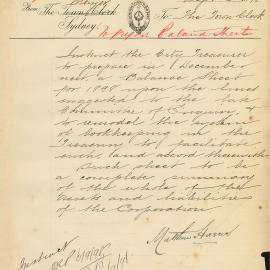 From The Town Clerk
Sydney.
To The Town Clerk
To prepare Balance Sheets
Instruct the City Treasurer
to prepare in December
next, a Balance Sheet
for 1898 upon the lines
suggested by the late
Committee of Enquiry, &
to remodel the system
of bookkeeping in the
Treasury to facilitate
such, and accord therewith
Such sheet to be
a complete summary
of the whole of the
assets and liabilities
of the Corporation
Matthew Harris
Instruct